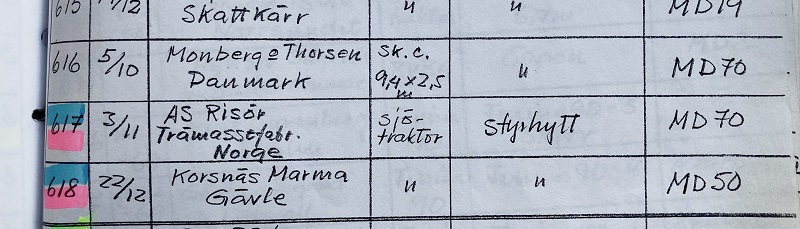 615 12 Skattkärr " " MD19
616 5/10 Monberg o Thorsen sk.c. " MD70
Danmark 9,4x2,5 m
617 3/11 AS Risör sjö- Styrhytt MD70
Trämassefabr. traktor
Norge
618 22/12 Korsnäs Marma " " MD50
Gävle